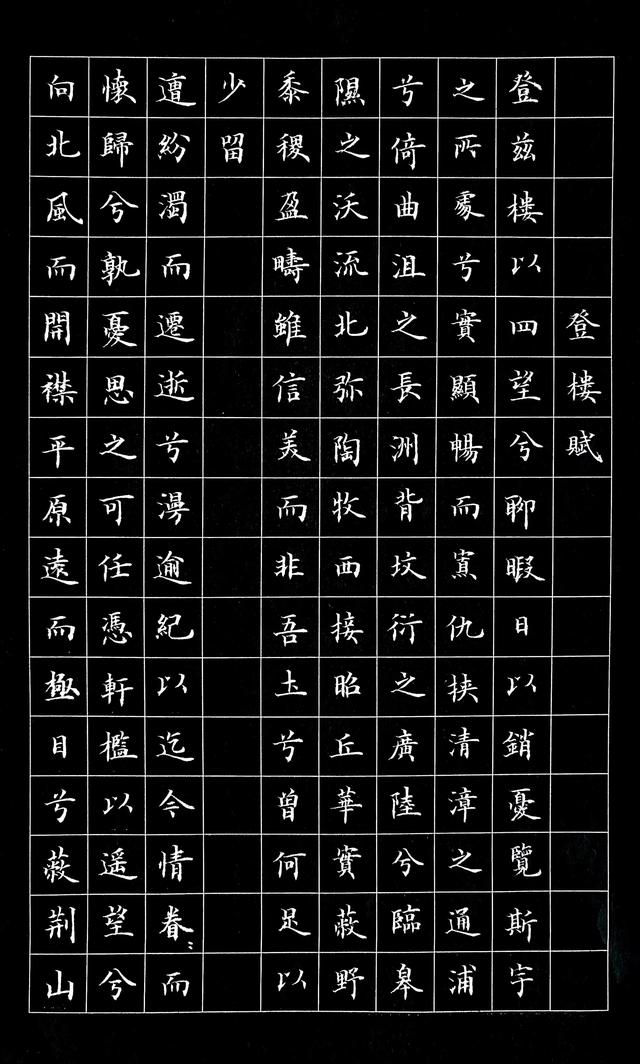 登樓賦
登茲樓以四望兮聊暇日以銷憂覽斯宇
之所處兮實顯暢而寡仇挾清漳之通浦
兮倚曲沮之長洲背坟衍之廣陸兮臨皋
隰之沃流北弥陶牧西接昭丘華實蔽野
黍稷盈疇雖信美而非吾土兮曾何足以
少留
遭紛濁而遷逝兮漫逾紀以迄今情眷〻而
懷歸兮孰憂思之可任憑軒檻以遥望兮
向北風而開襟平原遠而極目兮蔽荆山